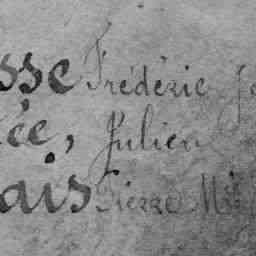 sse Frédéric
ée, Julien
ais Pierre